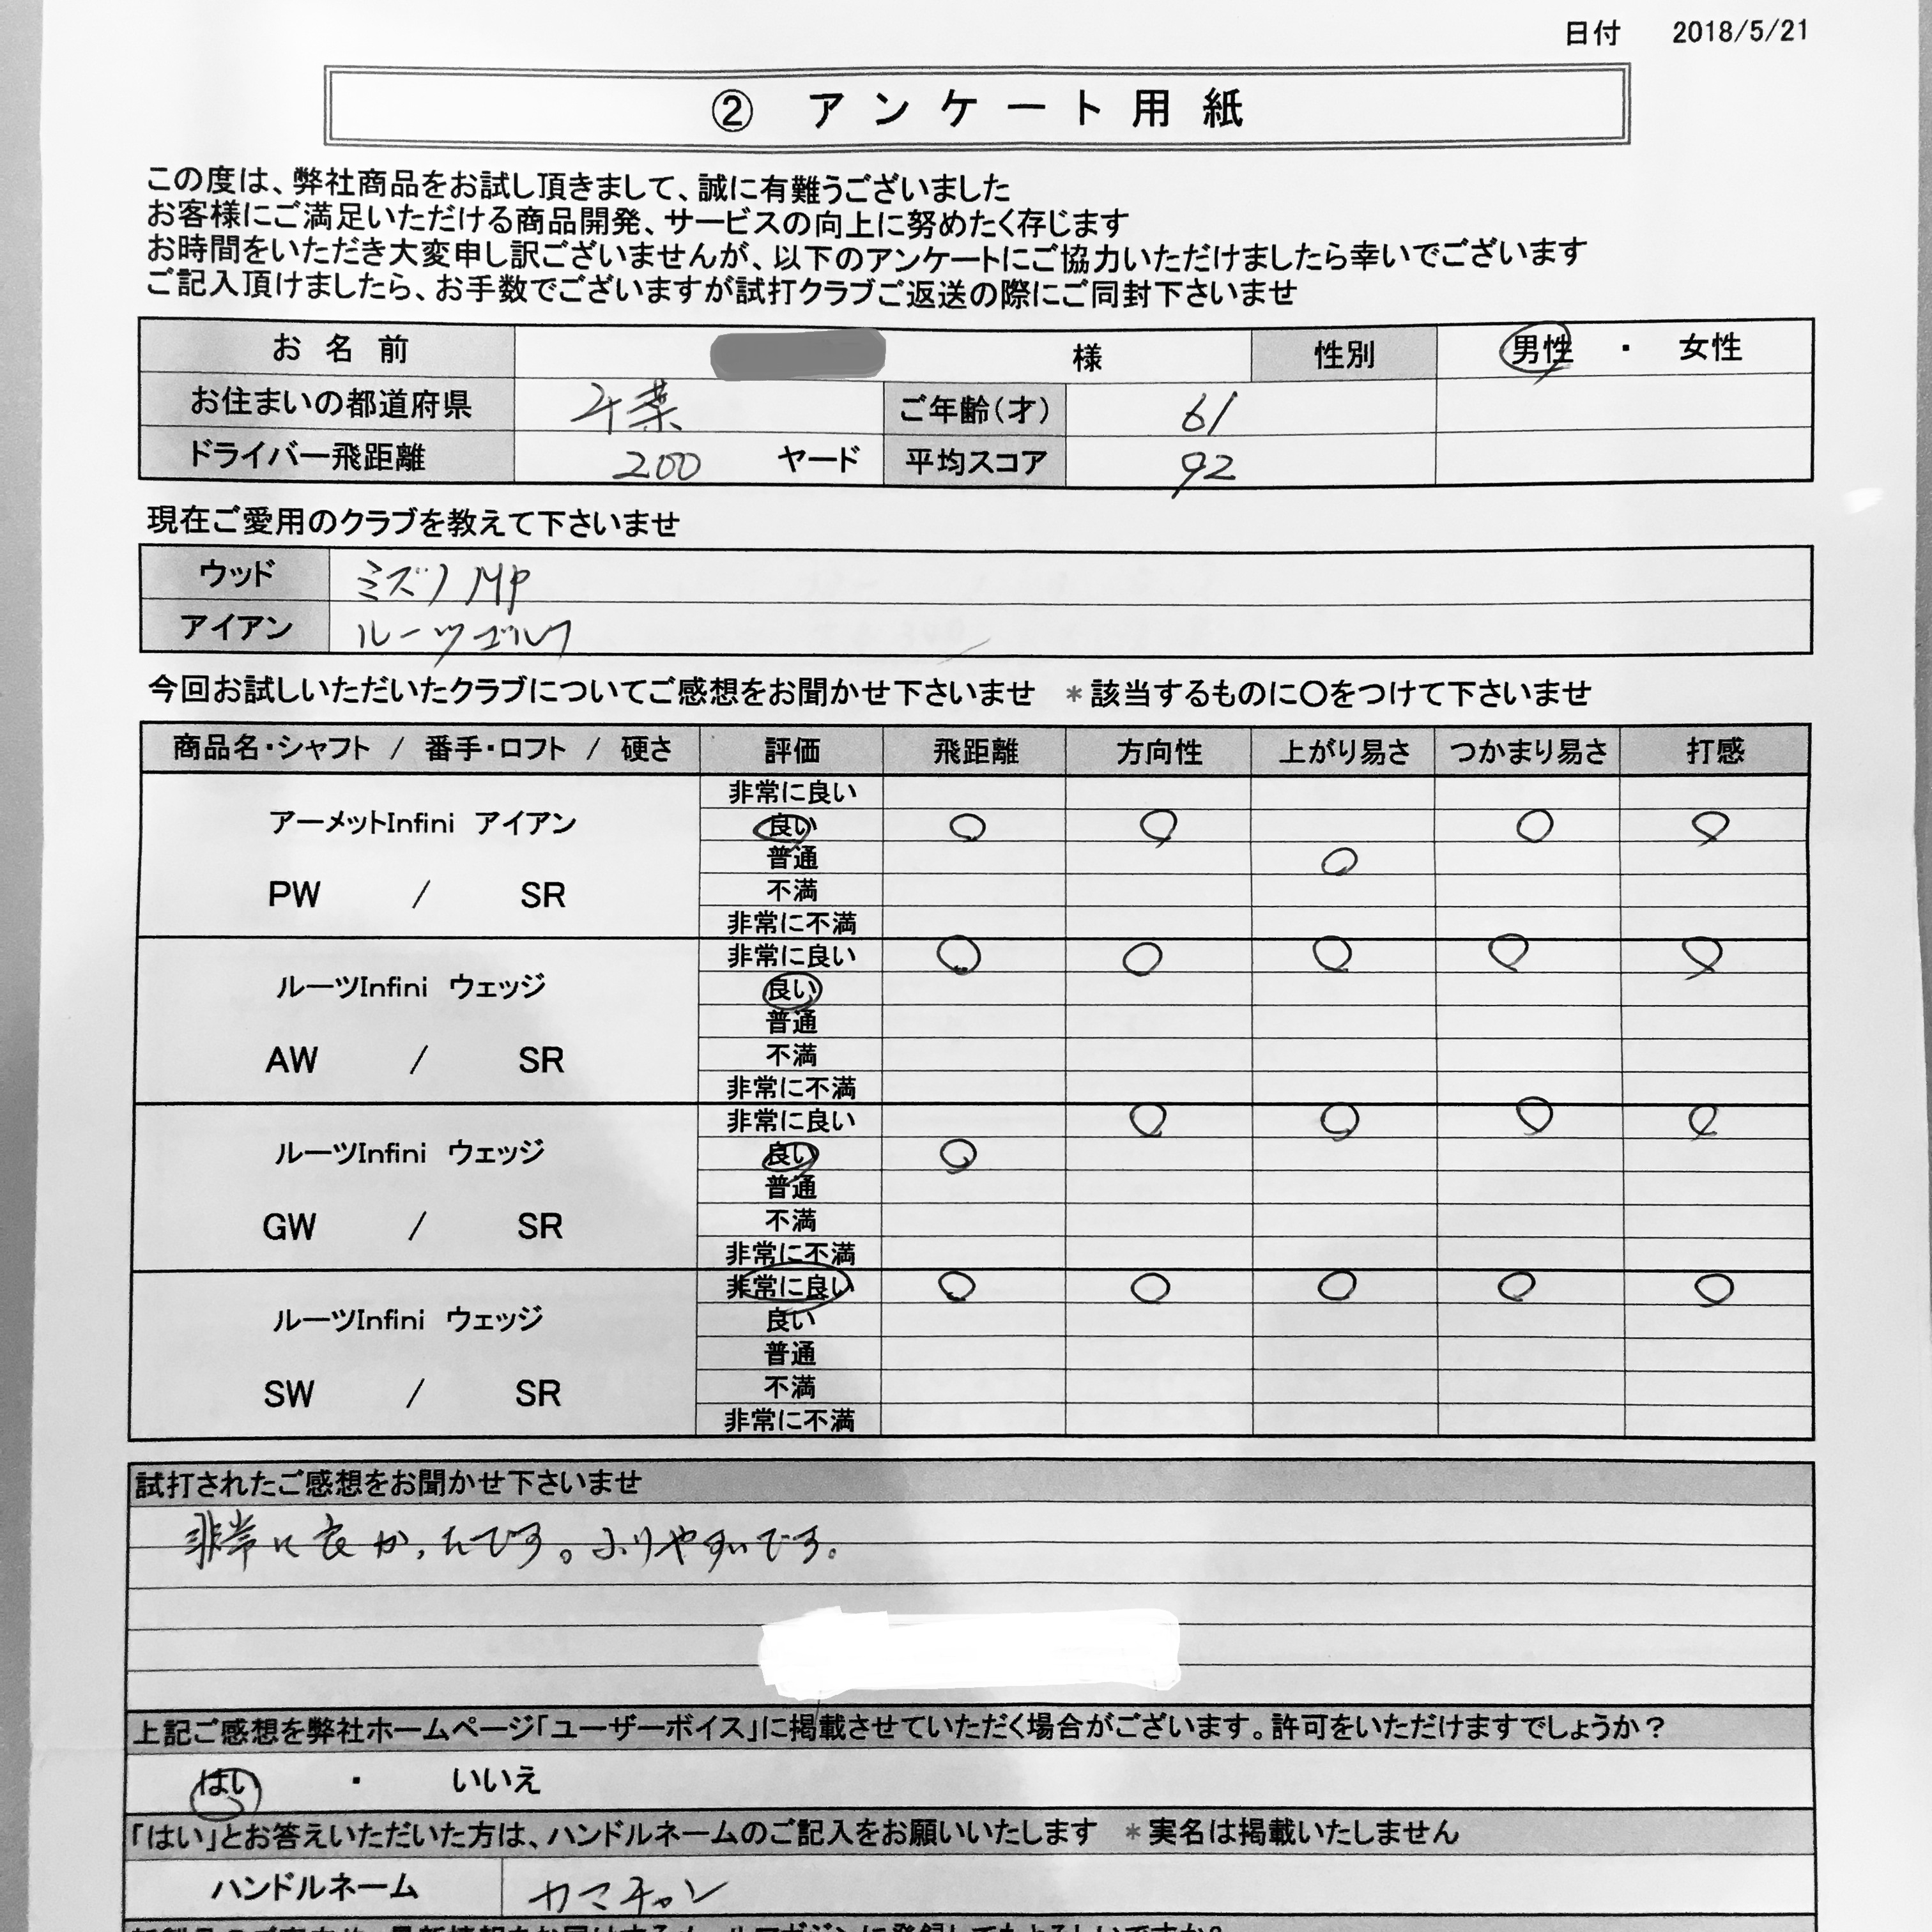 日付 2018/5/21
② アンケート用紙
この度は、弊社商品をお試し頂きまして、誠に有難うございました
お客様にご満足いただける商品開発、サービスの向上に努めたく存じます
お時間をいただき大変申し訳ございませんが、以下のアンケートにご協力いただけましたら幸いでございます
ご記入頂けましたら、お手数でございますが試打クラブご返送の際にご同封下さいませ
お名前 様 性別 男性 ・ 女性
お住まいの都道府県 千葉 ご年齢(才) 61
ドライバー飛距離 200 ヤード 平均スコア 92
現在ご愛用のクラブを教えて下さいませ
ウッド ミズノ MP
アイアン ルーツゴルフ
今回お試しいただいたクラブについてご感想をお聞かせ下さいませ *該当するものに〇をつけて下さいませ
商品名・シャフト / 番手・ロフト / 硬さ 評価 飛距離 方向性 上がり易さ つかまり易さ 打感
アーメットInfini アイアン
PW / SR
非常に良い
良い 〇 〇 〇 〇
普通 〇
不満
非常に不満
ルーツInfini ウェッジ
AW / SR
非常に良い 〇 〇 〇 〇 〇
良い
普通
不満
非常に不満
ルーツInfini ウェッジ
GW / SR
非常に良い 〇 〇 〇 〇
良い 〇
普通
不満
非常に不満
ルーツInfini ウェッジ
SW / SR
非常に良い 〇 〇 〇 〇 〇
良い
普通
不満
非常に不満
試打されたご感想をお聞かせ下さいませ
非常に良かったです。ふりやすいです。
上記ご感想を弊社ホームページ「ユーザーボイス」に掲載させていただく場合がございます。許可をいただけますでしょうか？
はい ・ いいえ
「はい」とお答えいただいた方は、ハンドルネームのご記入をお願いいたします *実名は掲載いたしません
ハンドルネーム カマチャン